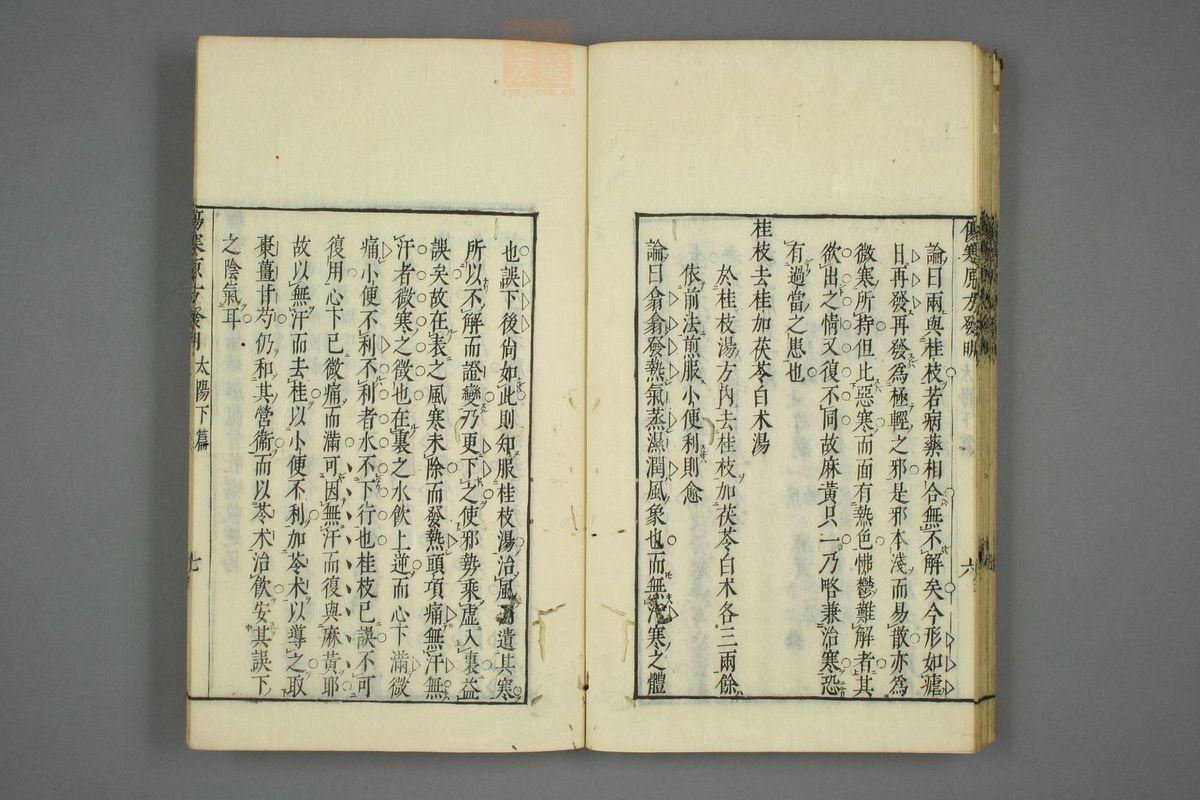 傷寒原方發明
六
論曰兩與桂枝若病藥相合無不解矣今形如瘧
日再發再發爲極輕之邪是邪本淺而易散亦爲
微寒所持但比惡寒而面有熱色怫鬱難解者其
欲出之情又復不同故麻黃只一乃略兼治寒恐
有過當之患也
桂枝去桂加茯苓白术湯
於桂枝湯方內去桂枝加茯苓白术各三兩餘
依前法煎服小便利則愈
論曰翕翕發熱氣蒸濕潤風象也而無汗寒之體
也誤下後尙如此則知服桂枝湯治風遺其寒
所以不解而證變乃更下之使邪勢乘虛入裏益
誤矣故在表之風寒未除而發熱頭項痛無汗無
汗者微寒之徵也在裏之水飮上逆而心下滿微
痛小便不利不利者水不下行也桂枝已誤不可
復用心下已微痛而滿可因無汗而復與麻黃耶
故以無汗而去桂以小便不利加苓术以導之取
棗薑甘芍仍和其營衞而以苓术治飮安其誤下
之陰氣耳
傷寒原方發明
太陽下篇
七
zysj.com.cn